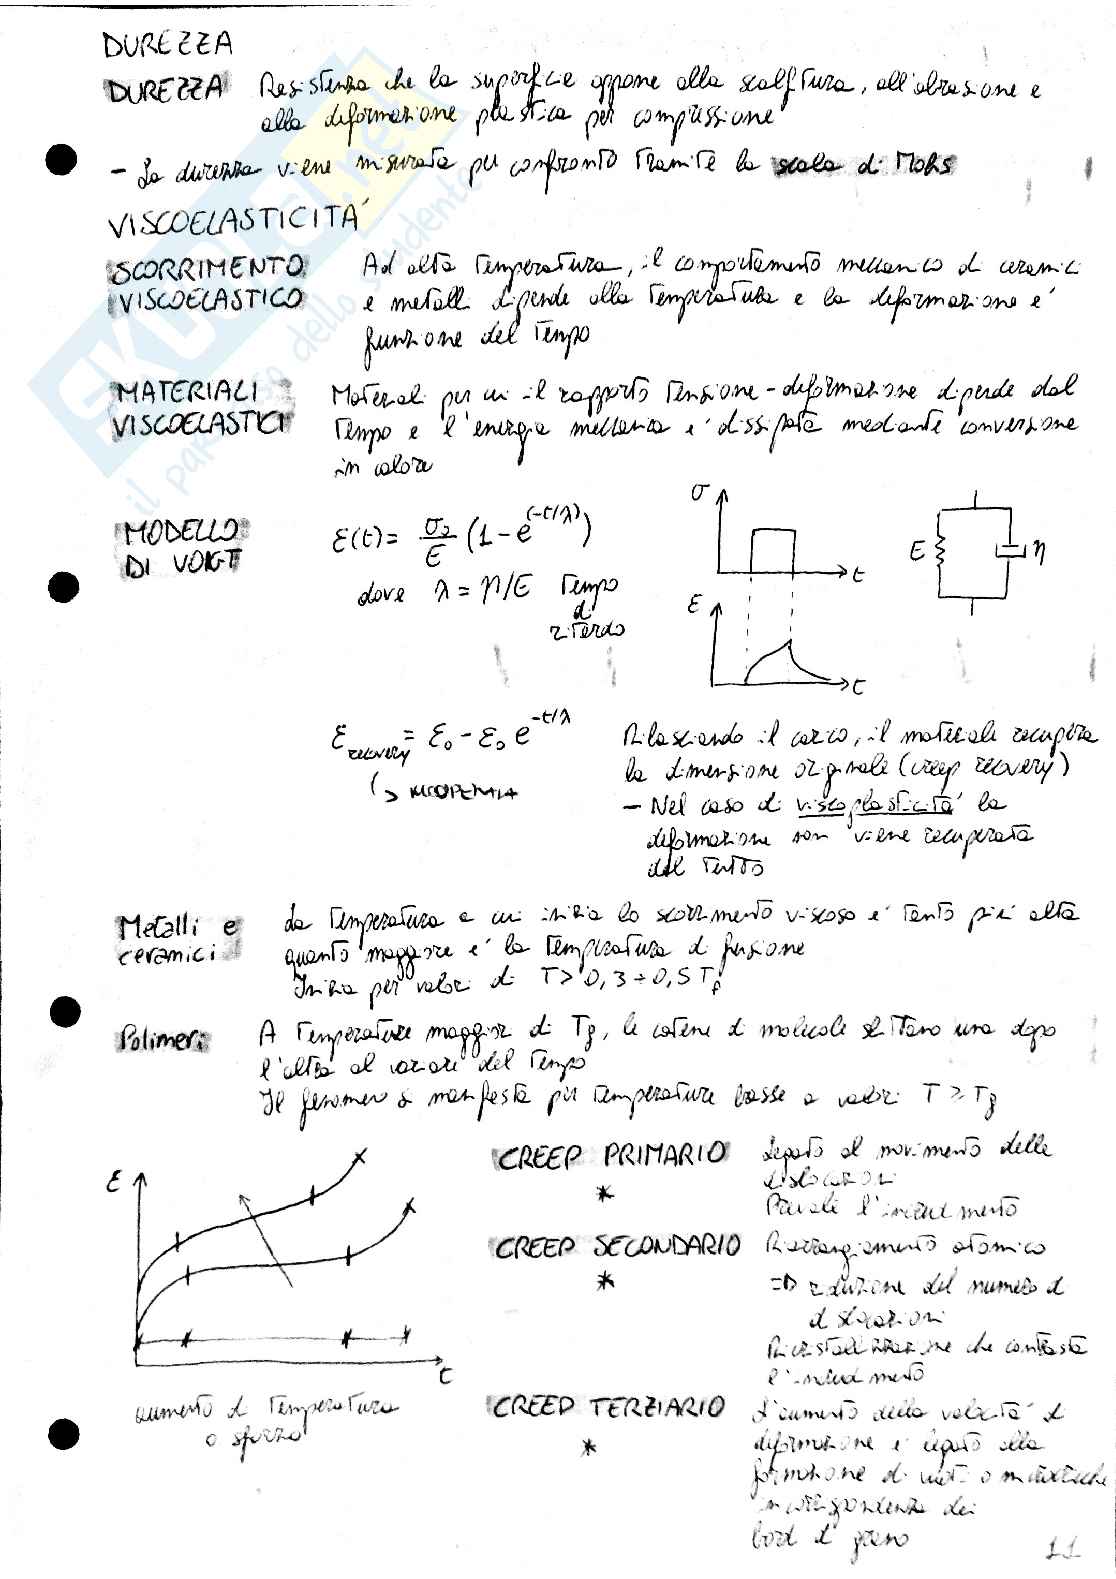 DUREZZA
DUREZZA Resistenza che la superficie oppone alla scalfittura, all'abrasione e
alla deformazione plastica per compressione
- La durezza viene misurata per confronto tramite la scala di Mohs
VISCOELASTICITA'
SCORRIMENTO VISCOELASTICO
Ad alta temperatura, il comportamento meccanico di ceramici
e metalli dipende alla temperatura e la deformazione e'
funzione del tempo
MATERIALI VISCOELASTICI
Materiali per cui il rapporto tensione-deformazione dipende dal
tempo e l'energia meccanica e' dissipata mediante conversione
in calore
MODELLO DI VOIGT
ε(t) = σ₀/E (1 - e^(-t/λ))
dove λ = η/E tempo
di
ritardo
σ
t
ε
t
E
η
ε recovery = ε₀ - ε₀ e^-t/λ
RECUPERATA
Rilasciando il carico, il materiale recupera
la dimensione originale (creep recovery)
- Nel caso di viscoplasticita' la
deformazione non viene recuperata
del tutto
Metalli e ceramici
La temperatura a cui inizia lo scorrimento viscoso e' tanto piu' alta
quanto maggiore e' la temperatura di fusione
Inizia per valori di T > 0,3 ÷ 0,5 Tf
Polimeri
A temperature maggiori di Tg, le catene di molecole slittano una dopo
l'altra al variare del tempo
Il fenomeno si manifesta per temperature basse a valori T > Tg
ε
t
aumento di temperatura
o sforzo
CREEP PRIMARIO
*
Legato al movimento delle
dislocazioni
Prevale l'incrudimento
CREEP SECONDARIO
*
Riarrangiamento atomico
=> riduzione del numero di
dislocazioni
Ricristallizzazione che contrasta
l'incrudimento
CREEP TERZIARIO
*
L'aumento della velocita' di
deformazione e' legato alla
formazione di vuoti o microcricche
in corrispondenza dei
bordi di grano
11
SKUOLA.net
il paradiso dello studente